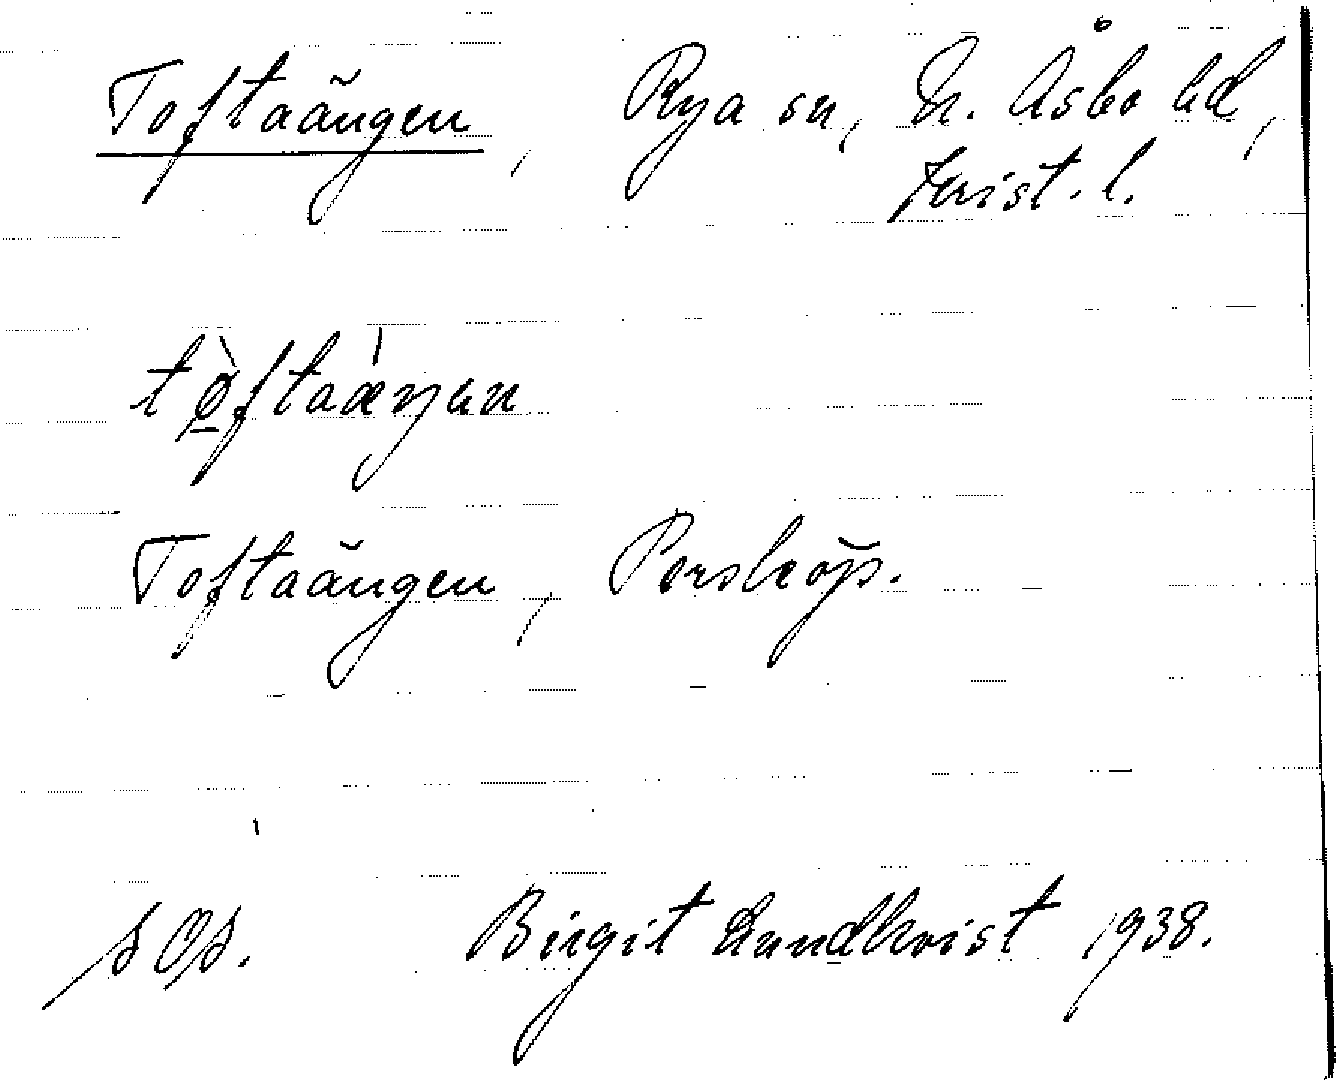 Toftaängen, Rya sn, N. Åsbo hd,
Krist. l.
tø̀ftaæŋən
Toftaängen, Perstorp.
Birgit Lundkvist 1938.